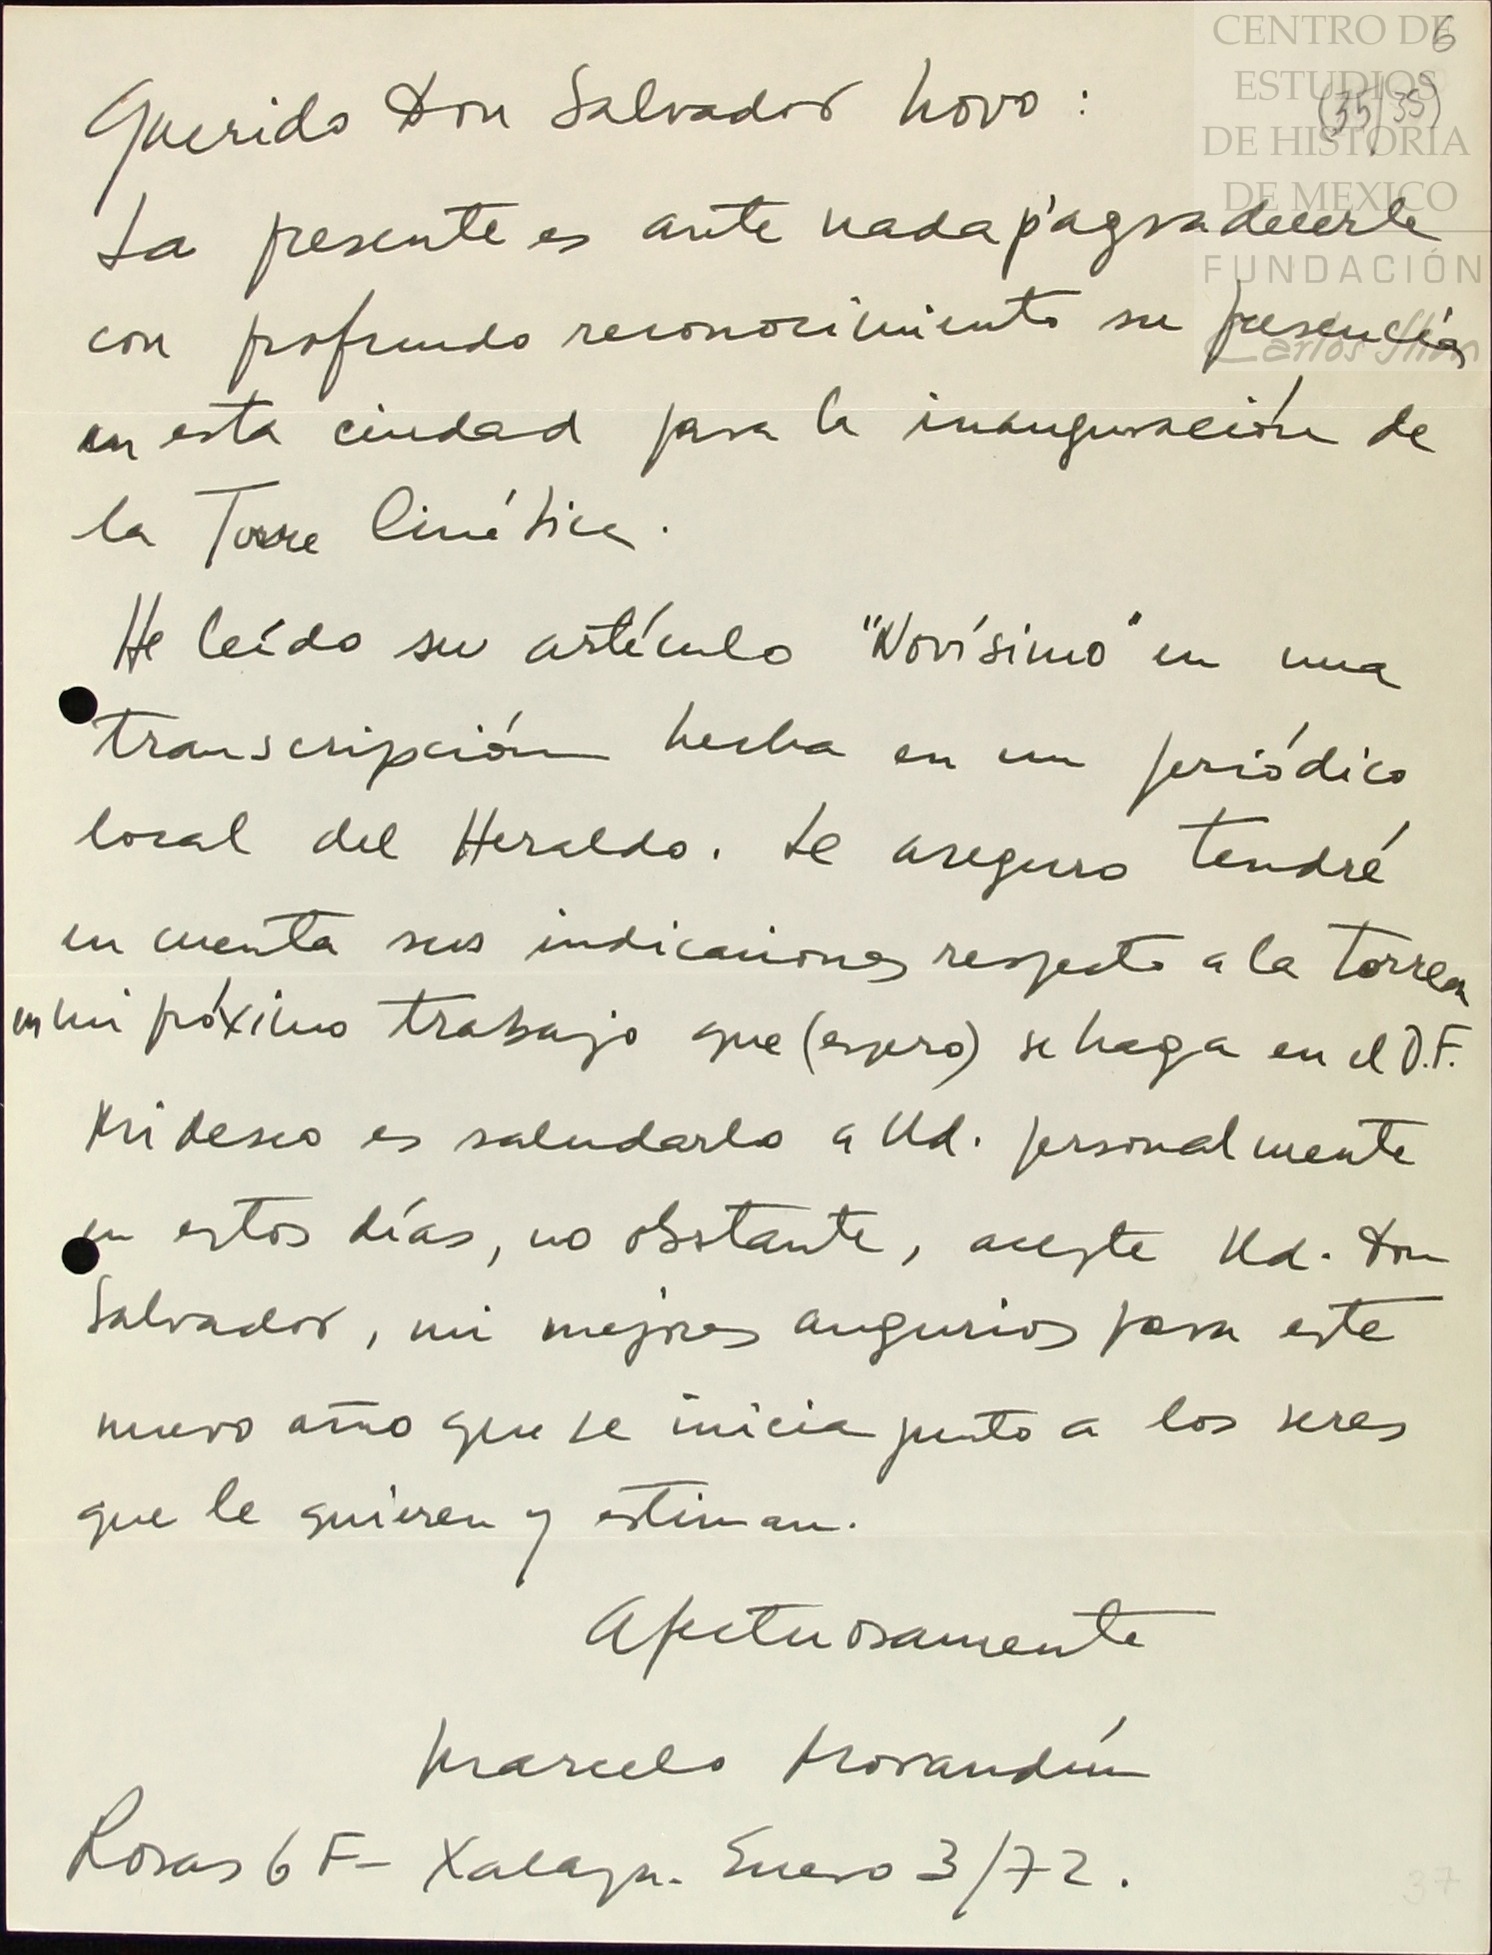 6
CENTRO DE
ESTUDIOS
(35/35)
DE HISTORIA
DE MEXICO
FUNDACIÓN
Carlos Slim
Querido Don Salvador Novo:
La presente es ante nada p'agradecerle
con profundo reconocimiento su presencia
en esta ciudad para la inauguración de
la Torre Cinética.
He leído su artículo "Novísimo" en una
transcripción hecha en un periódico
local del Heraldo. Le aseguro tendré
en cuenta sus indicaciones respecto a la torre
en mi próximo trabajo que (espero) se haga en el D.F.
Mi deseo es saludarlo a Ud. personalmente
en estos días, no obstante, acepte Ud. Don
Salvador, mi mejores augurios para este
nuevo año que se inicia junto a los seres
que le quieren y estiman.
Afectuosamente
Marcelo Morandín
Rosas 6 F- Xalapa. Enero 3/72.
37